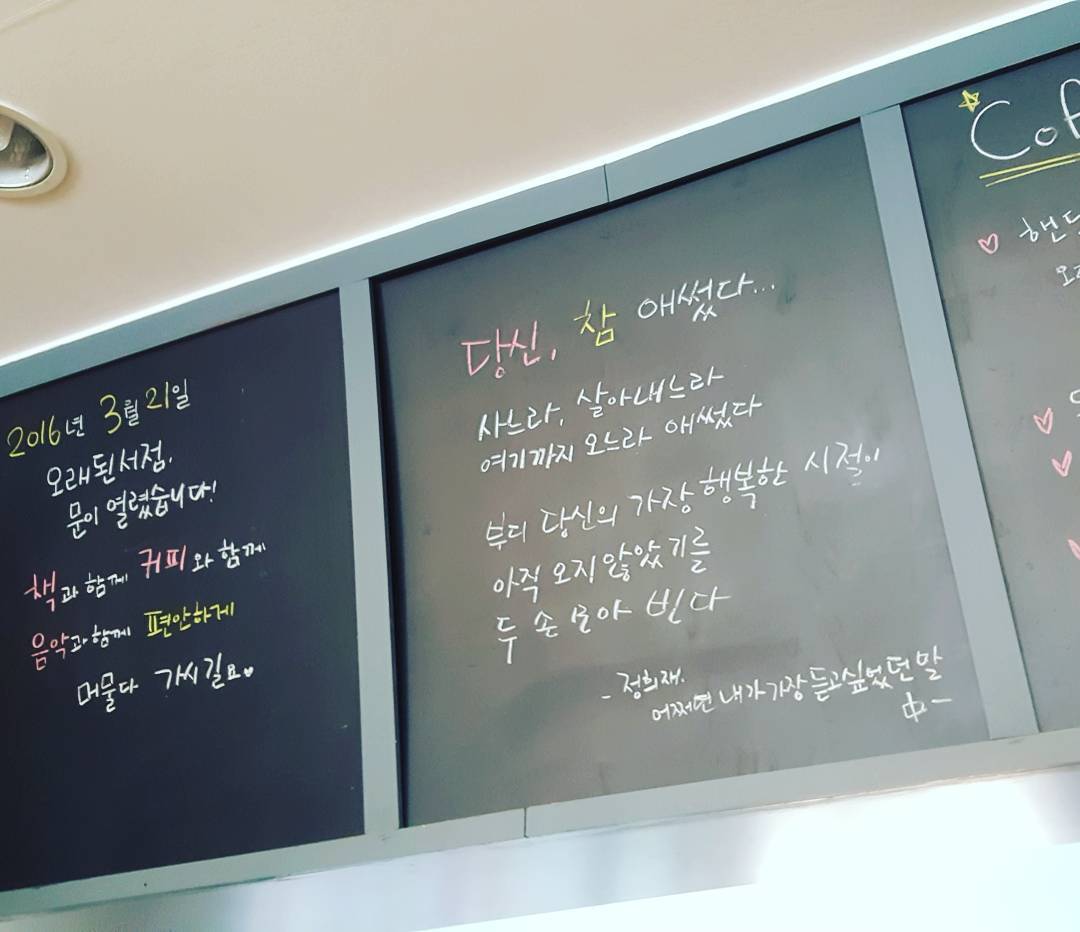 2016년 3월 21일
오래된서점.
문이 열렸습니다!
책과 함께 커피와 함께
음악과 함께 편안하게
머물다 가시길요
당신, 참 애썼다...
사느라, 살아내느라
여기까지 오느라 애썼다
부디 당신의 가장 행복한 시절이
아직 오지 않았기를
두 손 모아 빈다
- 정희재.
어쩌면 내가 가장 듣고싶었던 말
中-